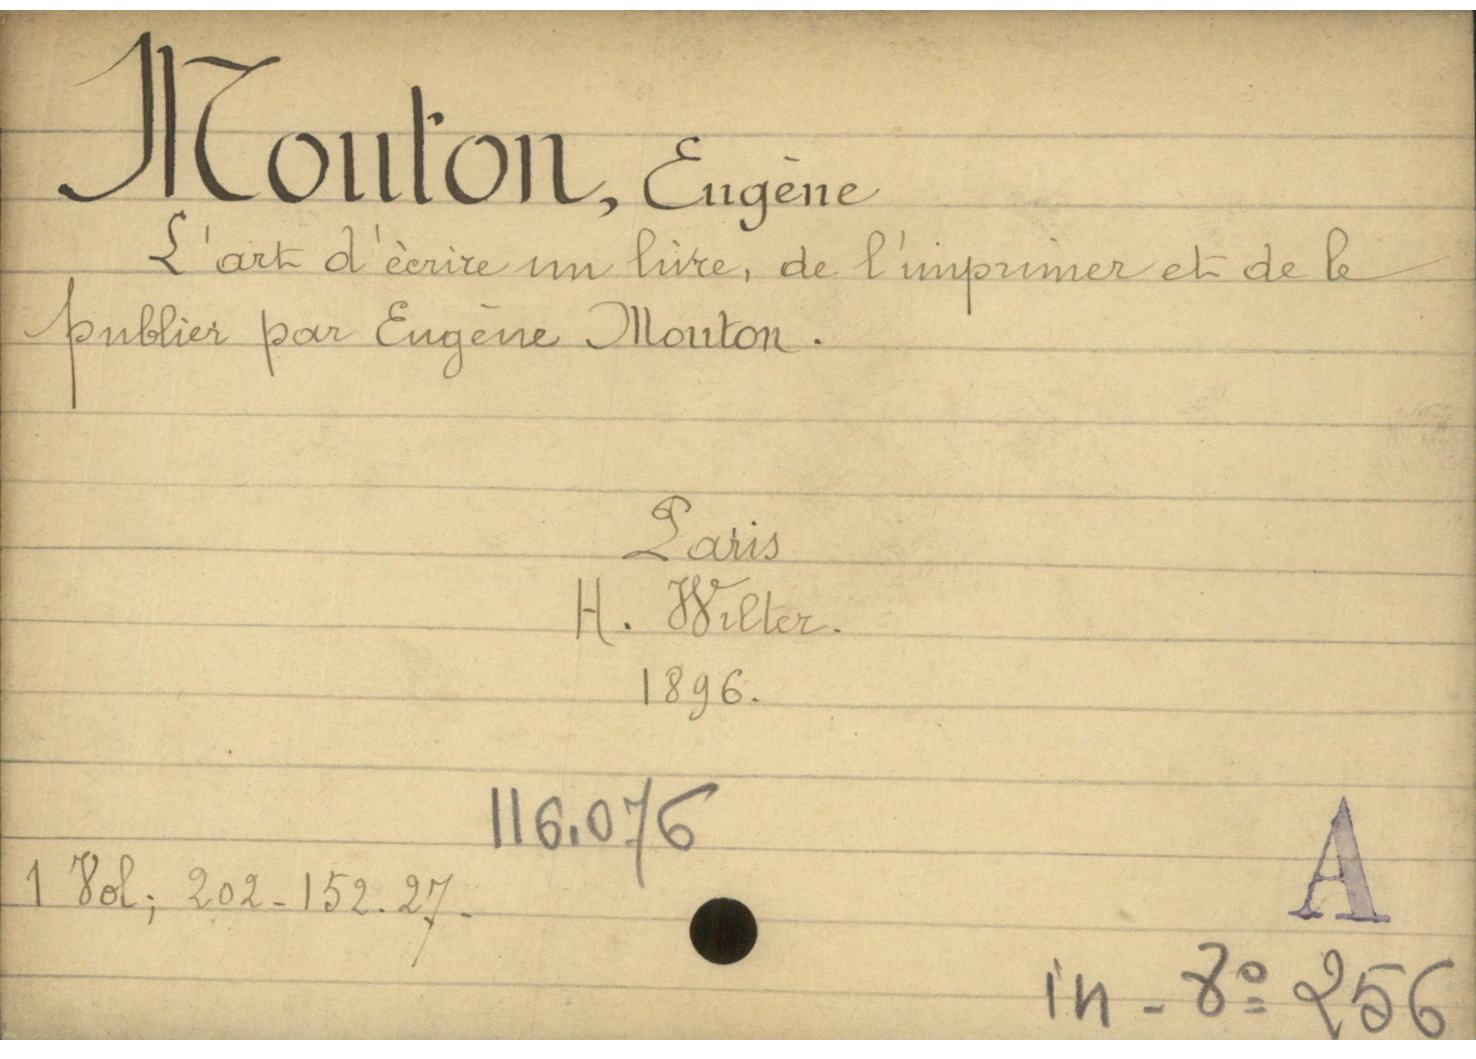 Mouton, Eugène
L'art d'ècrire un livre, de l'imprimer et de le
publier par Eugène Mouton.
Paris
H. Wilter.
1896.
116.076
1 Vol; 202-152.27.
A
in-8º 256